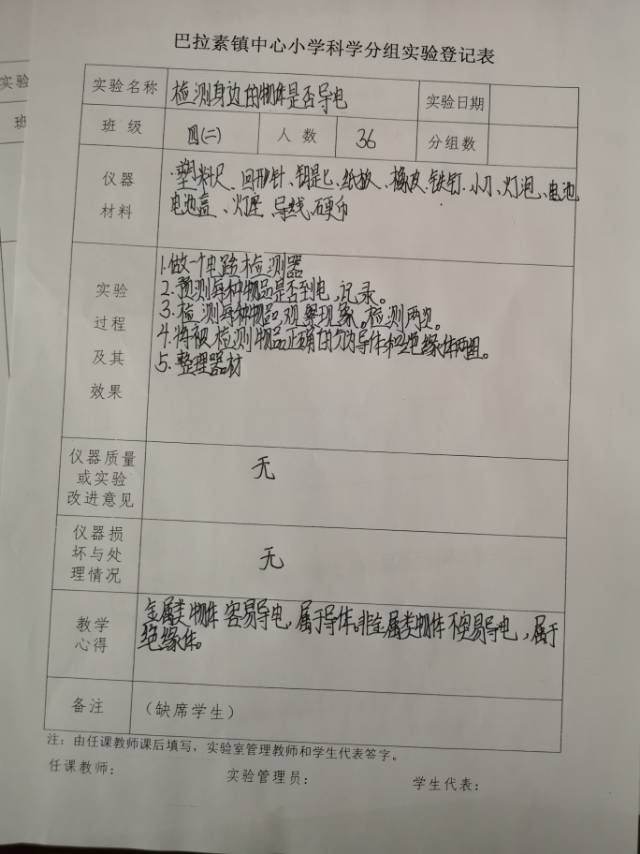 巴拉素镇中心小学科学分组实验登记表
实验名称 检测身边的物体是否导电 实验日期
班 级 四(二) 人 数 36 分组数
仪器
材料
塑料尺、回形针、钥匙、纸板、橡皮、铁钉、小刀、灯泡、电池
电池盒、灯座、导线、硬币
实验
过程
及其
效果
1.做一个电路检测器
2.预测每种物品是否到电,记录。
3.检测每种物品,观察现象。检测两次。
4.将被检测物品正确的分为导体和绝缘体两组。
5.整理器材
仪器质量
或实验
改进意见
无
仪器损
坏与处
理情况
无
教学
心得
金属类物体容易导电,属于导体。非金属类物体不容易导电,属于
绝缘体。
备注 (缺席学生)
注:由任课教师课后填写,实验室管理教师和学生代表签字。
任课教师: 实验管理员: 学生代表:
实验
班